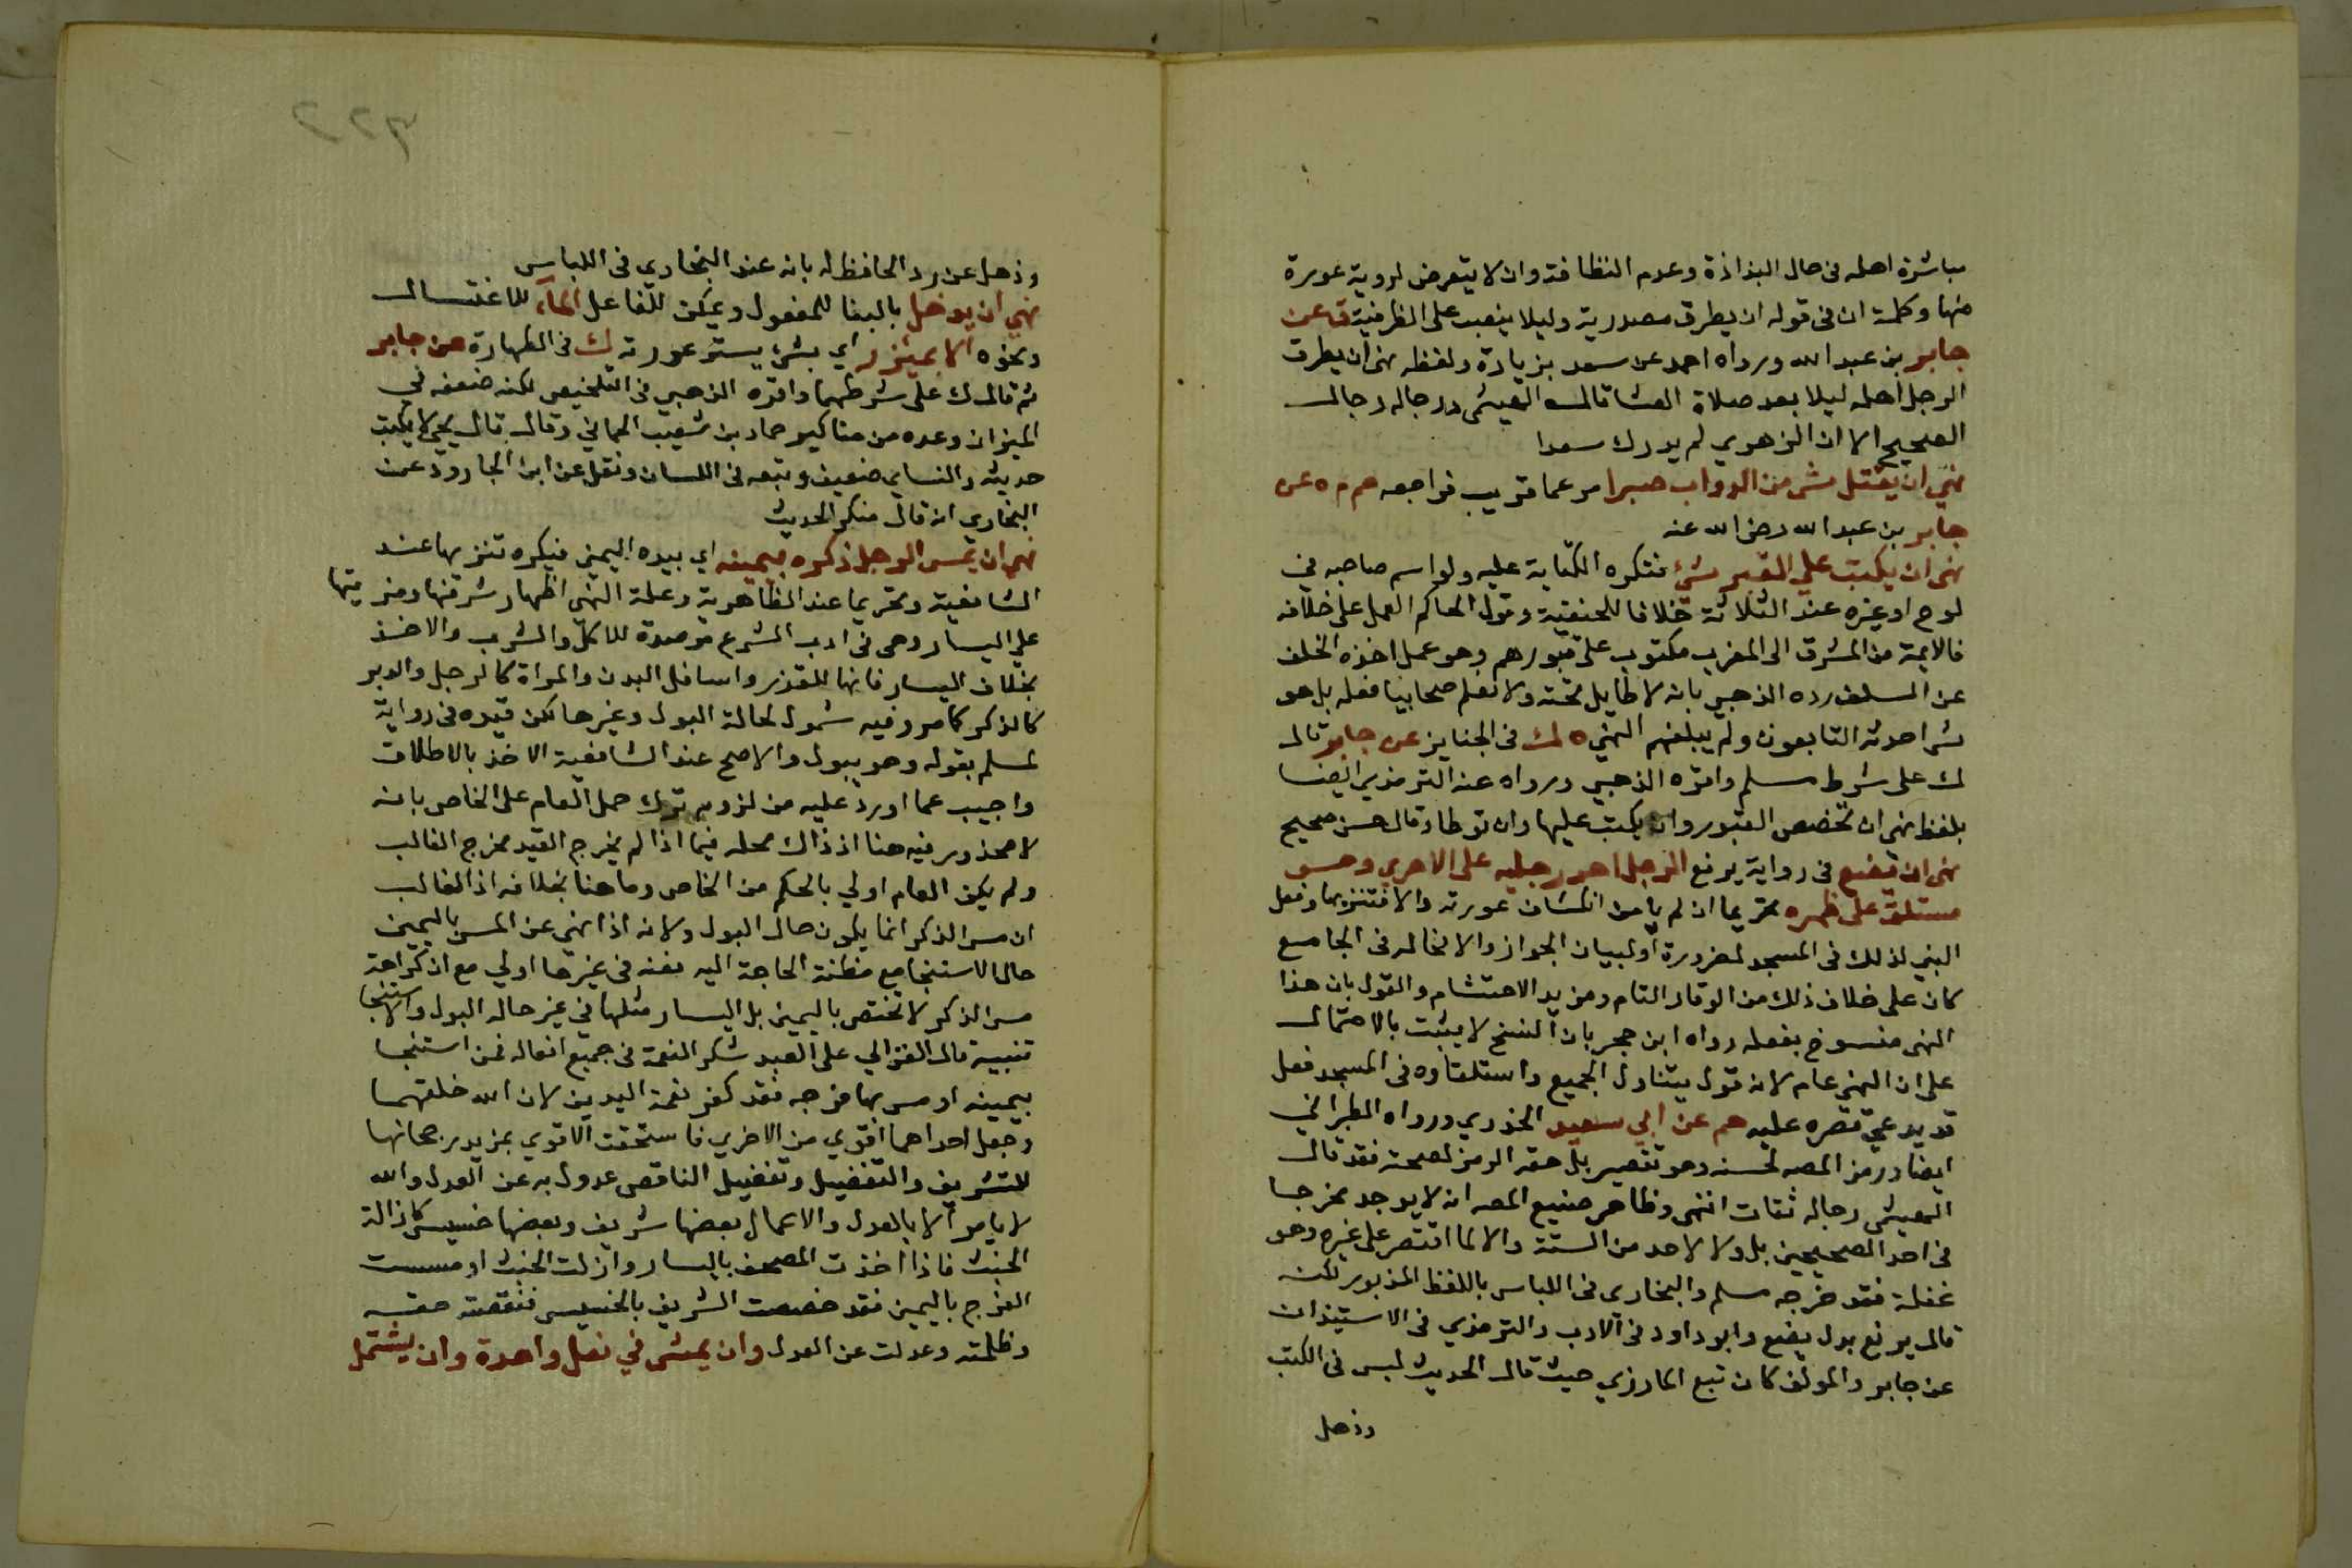 مباشرة اهله في حال البذاذة وعدم النظافة وان لا يتعرض لروية عورة
منها وكلمة ان في قوله ان يطرق مصدرية وليلا ينصب على الظرفية ق عن
جابر بن عبد الله ورواه احمد عن سعد بزيادة ولفظه نهى ان يطرق
الرجل اهله ليلا بعد صلاة العشا قال الهيثمي ورجاله رجال
الصحيح الا ان الزهري لم يدرك سعدا
نهي ان يقتل شي من الدواب صبرا مر عما قريب فراجعه حم م ه عن
جابر بن عبد الله رضي الله عنه
نهى ان يكتب علي القبر شئ فتكره الكتابة عليه ولو اسم صاحبه في
لوح او غيره عند الثلاثة خلافا للحنفية وقول الحاكم العمل على خلافه
فالايمة من المشرق الى المغرب مكتوب على قبورهم وهو عمل اخذه الخلف
عن السلف رده الذهبي بانه لا طايل تحته ولا نعلم صحابيا فعله بل هو
شي احدثه التابعون ولم يبلغهم النهي ه ك في الجنايز عن جابر قال
ك على شرط مسلم واقره الذهبي ورواه عنه الترمذي ايضا
بلفظ نهى ان تخصص القبور وان يكتب عليها وان توطا وقال حسن صحيح
نهى ان يضع في رواية يرفع الرجل احدى رجليه على الاخرى وهو
مستلق على ظهره تحريما ان لم يامن انكشاف عورته والا فتنزيها وفعل
النبي لذلك في المسجد لضرورة او لبيان الجواز والا فحاله في الجامع
كان على خلاف ذلك من الوقار التام ومزيد الاحتشام والقول بان هذا
النهى منسوخ بفعله رواه ابن حجر بان النسخ لا يثبت بالاحتمال
على ان النهي عام لانه قول يتناول الجميع واستلقاوه في المسجد فعل
قد يدعي قصره عليه حم عن ابي سعيد الخدري ورواه الطبراني
ايضا ورمز المص لحسنه وهو تقصير بل حقه الرمز لصحته فقد قال
الهيثمي رجاله ثقات انتهى وظاهر صنيع المص انه لا يوجد مخرجا
في احد الصحيحين بل ولا لاحد من الستة والا لما اقتصر على غيره وهو
غفلة فقد خرجه مسلم والبخاري في اللباس باللفظ المزبور لكنه
قال يرفع بدل يضع وابو داود في الادب والترمذي في الاستيذان
عن جابر والمولف كان تبع المازري حيث قال الحديث ليس في الكتب
وذهل
وذهل عن رد الحافظ له بانه عند البخاري في اللباس
نهي ان يدخل بالبنا للمفعول ويمكن للفاعل الماء للاغتسال
ونحوه الا بميزر اي بشئ يستر عورته ك في الطهارة عن جابر
ثم قال ك على شرطهما واقره الذهبي في التلخيص لكنه ضعفه في
الميزان وعده من مناكير حماد بن شعيب الحماني وقال قال يحيى لا يكتب
حديثه والنساي ضعيف وتبعه في اللسان ونقل عن ابن الجارود عن
البخاري انه قال منكر الحديث
نهي ان يمس الرجل ذكره بيمينه اي بيده اليمنى فيكره تنزيها عند
الشافعية وتحريما عند الظاهرية وعلة النهي اظهار شرفها ومزيتها
على اليسار وهى في ادب الشرع مرصدة للاكل والشرب والاخذ
بخلاف اليسار فانها للقذر واسافل البدن والمراة كالرجل والدبر
كالذكر كما مر وفيه شمول لحالة البول وغيرها لكن قيده في رواية
لمسلم بقوله وهو يبول والاصح عند الشافعية الاخذ بالاطلاق
واجيب عما اورد عليه من لزوم ترك حمل العام على الخاص بانه
لا محذور فيه هنا اذ ذاك محله فيما اذا لم يخرج القيد مخرج الغالب
ولم يكن العام اولي بالحكم من الخاص وما هنا بخلافه اذ الغالب
ان مس الذكر انما يكون حال البول ولانه اذا نهي عن المس باليمين
حال الاستنجا مع مظنة الحاجة اليه فعنه في غيرها اولي مع ان كراهة
مس الذكر لا تختص باليمين بل اليسار مثلها في غير حالة البول والاستنجا
تنبيه قال الغزالي على العبد شكر النعمة في جميع افعاله فمن استنجا
بيمينه او مس بها فرجه فقد كفر نعمة اليدين لان الله خلقهما
وجعل احداهما اقوي من الاخري فاستحقت الاقوي بمزيد رجحانها
للتشريف والتفضيل وتفضيل الناقص عدول به عن العدل والله
لا يامر الا بالعدل والاعمال بعضها شريف وبعضها خسيس كازالة
الخبث فاذا اخذت المصحف باليسار وازلت الخبث او مسست
الفرج باليمين فقد خصصت الشريف بالخسيس فنقصته حقه
وظلمته وعدلت عن العدل وان يمشى في نعل واحدة وان يشتمل